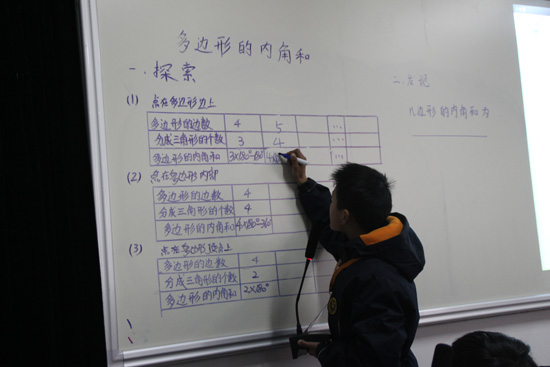 多边形的内角和
一. 探索
(1) 点在多边形边上
多边形的边数 4 5 ...
分成三角形的个数 3 4 ...
多边形的内角和 3×180°-180° 4×18 ...
(2) 点在多边形内部
多边形的边数 4
分成三角形的个数 4
多边形的内角和 4×180°-360°
(3) 点在多边形顶点上
多边形的边数 4
分成三角形的个数 2
多边形的内角和 2×180°
二.
n边形的内角和为